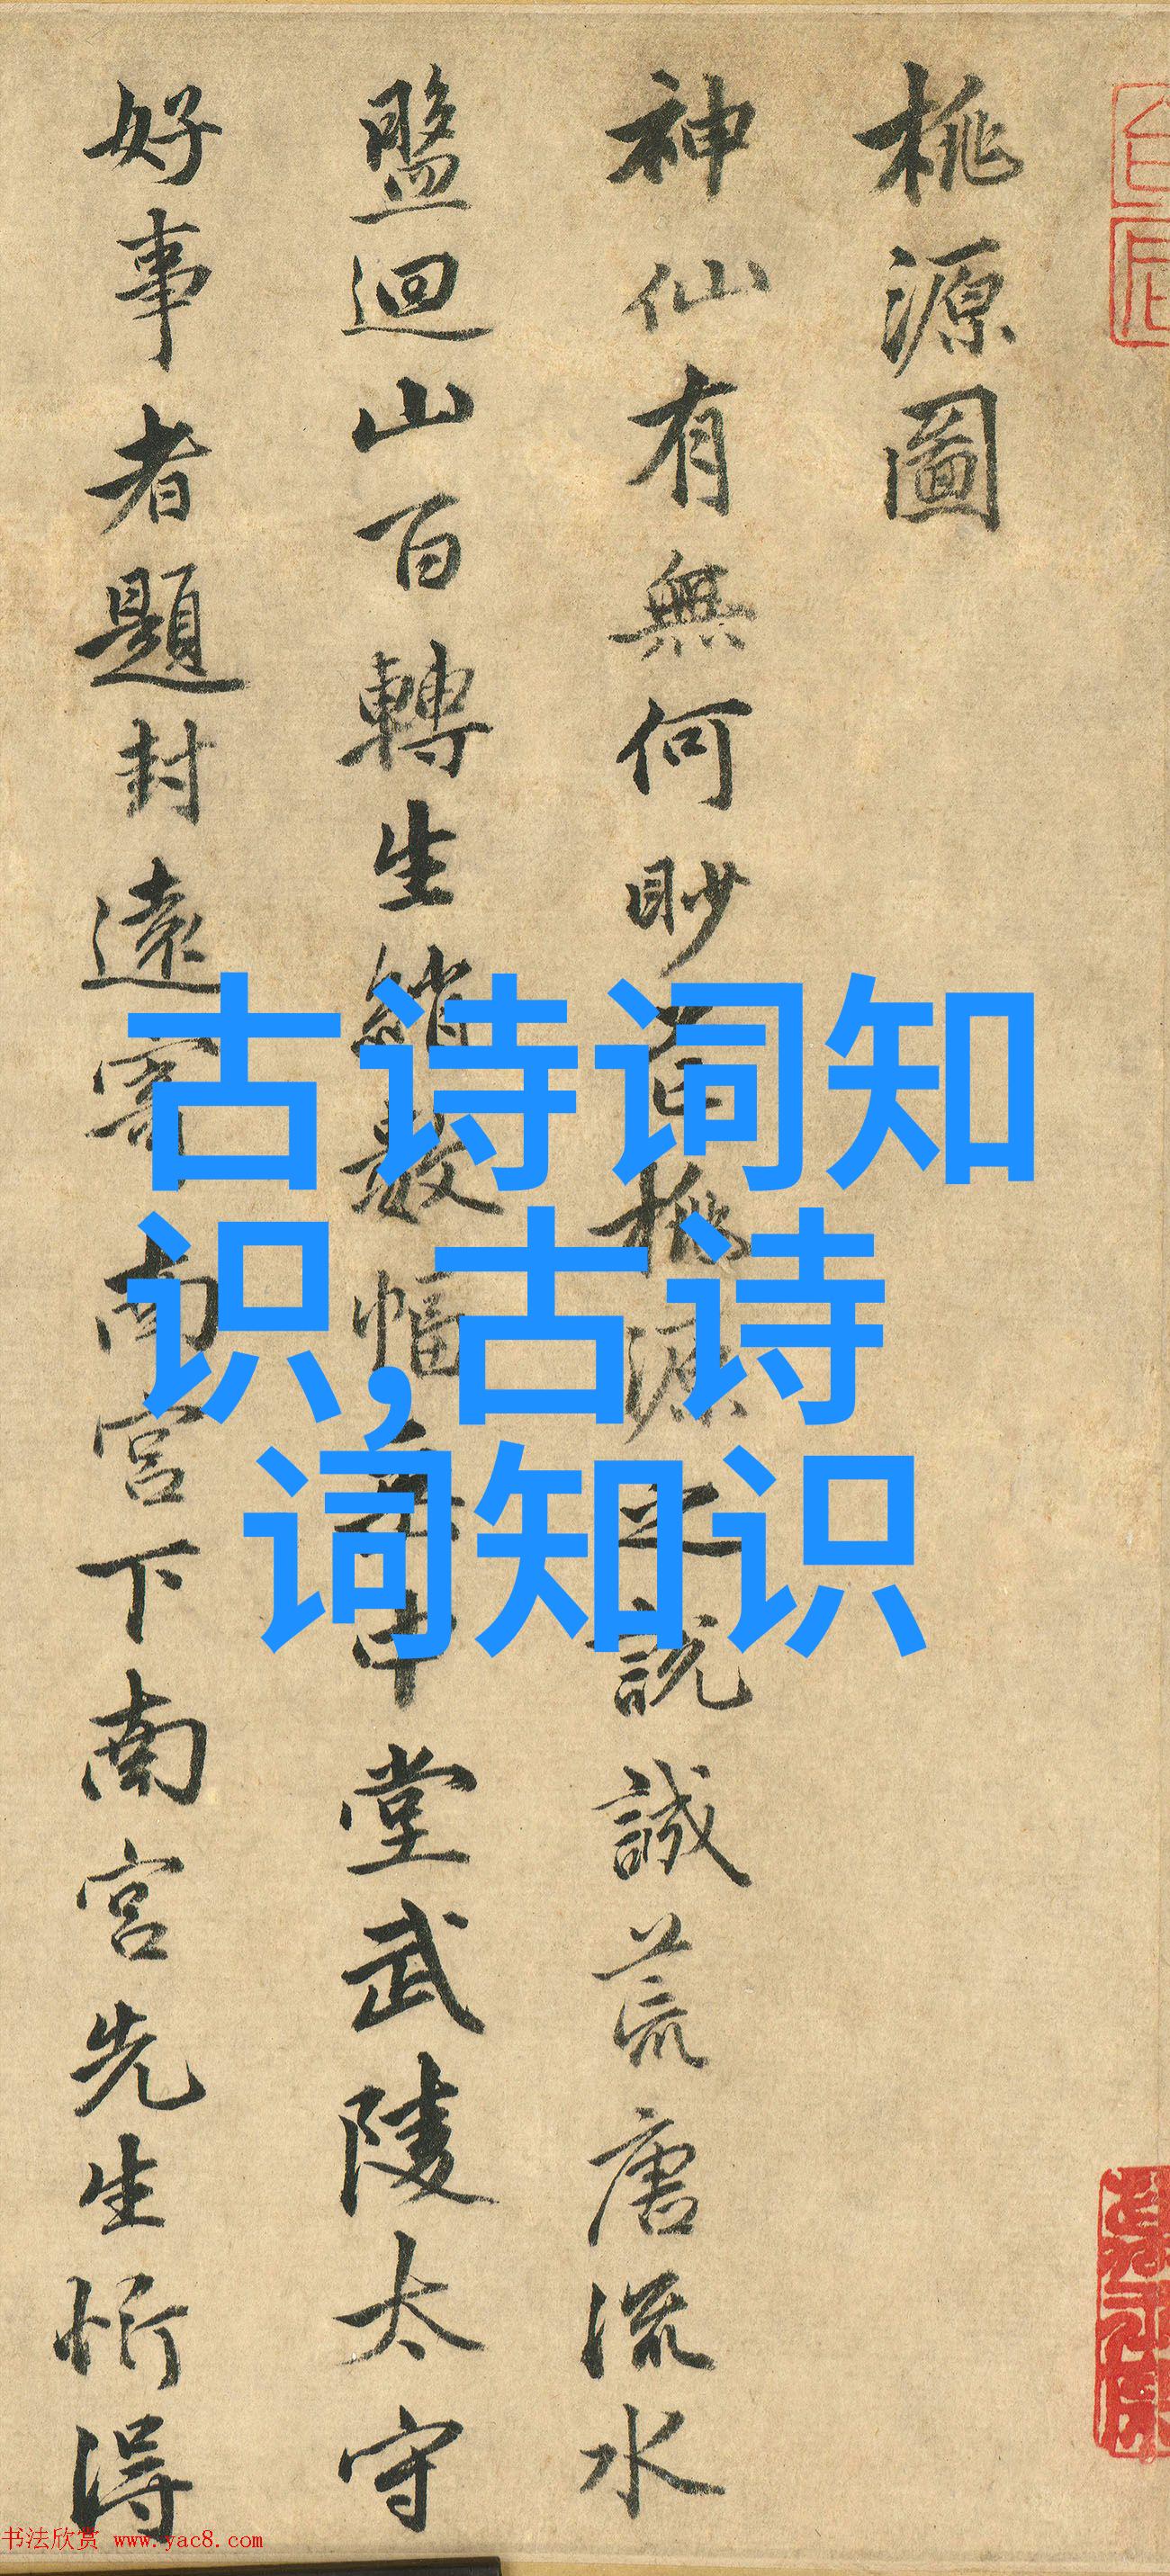 桃源圖
神仙有無何眇芒桃源之說誠荒唐流水
盤迴山百轉生綃數幅垂中堂武陵太守
好事者題封遠寄南宮下南宮先生忻得
古诗词知
识,古诗
词知识
书法欣赏 www.yac8.com